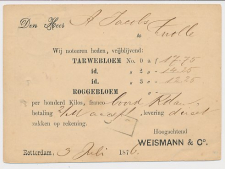 Den Heer A Jacobs
te Zwolle
Wij noteeren heden, vrijblijvend:
TARWEBLOEM No. 0 à ƒ 17.75
id. " 1 "
id. " 2 " 12.25
ROGGEBLOEM "
per honderd Kilos, franco boord Rdam
betaling levering
zakken op rekening.
Hoogachtend
WEISMANN & Co.
Rotterdam, 3 Juli 1876.